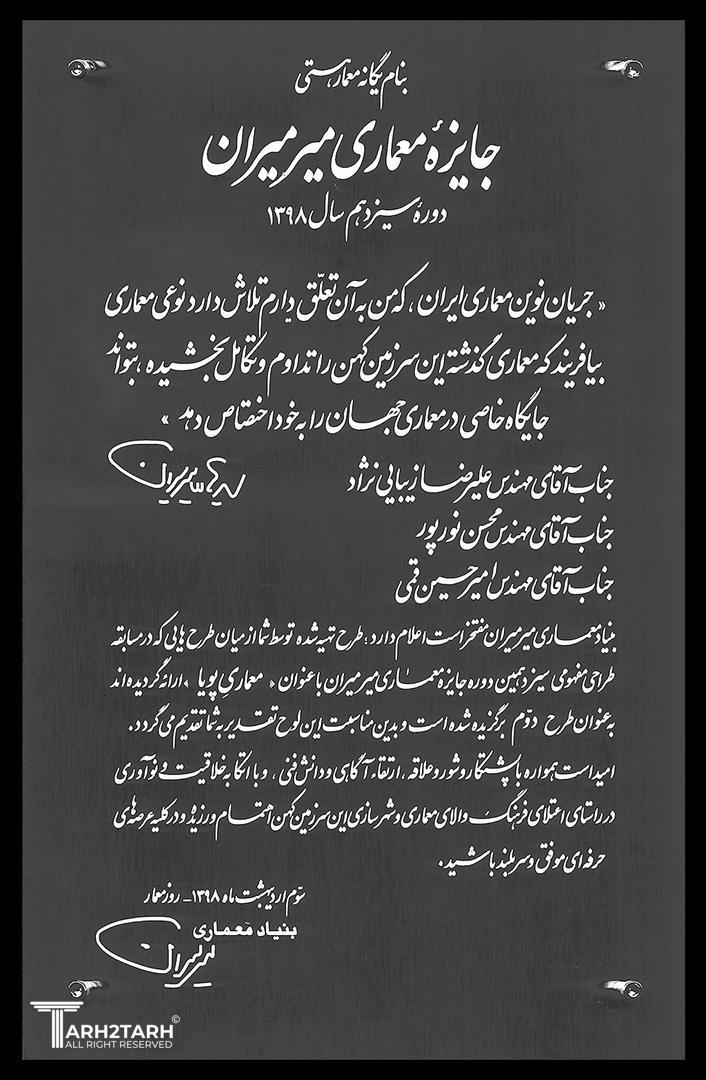 بنام یگانه معمار هستی
جایزهٔ معماری میرمیران
دورهٔ سیزدهم سال ۱۳۹۸
« جریان نوین معماری ایران ، که من به آن تعلّق دارم تلاش دارد نوعی معماری
بیافریند که معماری گذشته این سرزمین کهن را تداوم و تکامل بخشیده ، بتواند
جایگاه خاصی در معماری جهان را به خود اختصاص دهد »
جناب آقای مهندس علیرضا زیبایی نژاد
جناب آقای مهندس محسن نورپور
جناب آقای مهندس امیرحسین قمی
بنیاد معماری میرمیران مفتخر است اعلام دارد ؛ طرح تهیه شده توسط شما از میان طرح هایی که در مسابقه
طراحی مفهومی سیزدهمین دوره جایزه معماری میرمیران با عنوان « معماریِ پویا » ارائه گردیده اند
به عنوان طرح دوّم برگزیده شده است و بدین مناسبت این لوح تقدیر به شما تقدیم می گردد .
امید است همواره با پشتکار و شور و علاقه ، ارتقاء آگاهی و دانش فنی ، و با اتکا به خلاقیت و نوآوری
در راستای اعتلای فرهنگ والای معماری و شهرسازی این سرزمین کهن اهتمام ورزیده و در کلیه عرصه های
حرفه ای موفق و سربلند باشید .
سوّم اردیبهشت ماه ۱۳۹۸ - روز معمار
بنیاد معماری
میرمیران
TARH2TARH ©
ALL RIGHT RESERVED